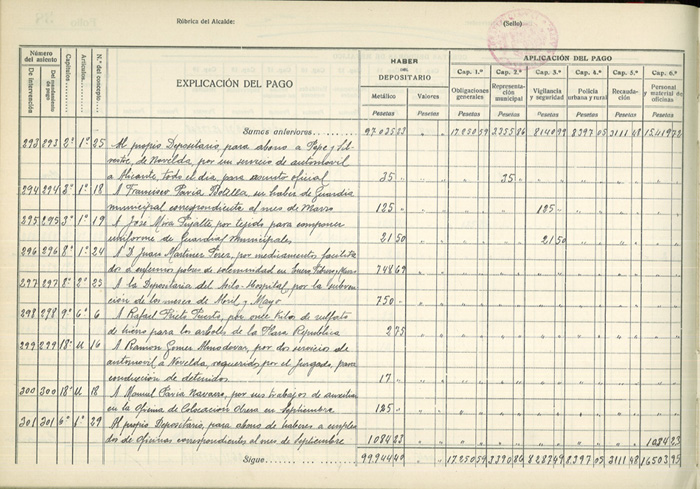 Rúbrica del Alcalde:
(Sello)
Número del asiento
De intervención
Del mandamiento de pago
Capítulos
Artículos
N.º del concepto
EXPLICACIÓN DEL PAGO
HABER DEL DEPOSITARIO
Metálico
Valores
Pesetas
Pesetas
APLICACIÓN DEL PAGO
Cap. 1.º Cap. 2.º Cap. 3.º Cap. 4.º Cap. 5.º Cap. 6.º
Obligaciones generales
Representación municipal
Vigilancia y seguridad
Policía urbana y rural
Recaudación
Personal y material de oficinas
Pesetas Pesetas Pesetas Pesetas Pesetas Pesetas
Sumas anteriores 97.035 23 17.250 59 3355 86 8140 99 8397 05 3111 48 15419 72
293 293 2º 1º 25 Al propio Depositario, para abono a Pepe y
de Novelda, por un servicio de automovil
a Alicante, todo el dia, para asunto oficial 35 35
294 294 3º 1º 18 A Francisco Pavia Botella, su haber de Guardia
municipal correspondiente al mes de Marzo 125 125
295 295 3º 1º 19 A José Mira por tejido para componer
uniforme de Guardias Municipales 21 50 21 50
296 296 8º 1º 24 A D. Juan Martinez Perez, por medicamentos facilita-
dos a enfermos pobres de solemnidad en Enero Febrero y Marzo 748 69
297 297 8º 2º 23 A la Depositaria del Asilo-Hospital, por la subven-
ción de los meses de Abril y Mayo 750
298 298 9º 6º 6 A Rafael Prieto Puerto, por once kilos de sulfato
de hierro para los arboles de la Plaza Republica 2 75
299 299 18º u 16 A Ramon Gomez Almodovar, por dos servicios de
automovil a Novelda, requeridos por el juzgado, para
conducción de detenidos 17
300 300 18º u 18 A Manuel Pavia Navarro, por sus trabajos de auxiliar
en la Oficina de Colocacion Obrera en Septiembre 125
301 301 6º 1º 29 Al propio Depositario, para abono de haberes a emplea-
dos de oficinas correspondientes al mes de Septiembre 1084 23 1084 23
Sigue 99.944 40 17.250 59 3390 86 8287 49 8397 05 3111 48 16503 95